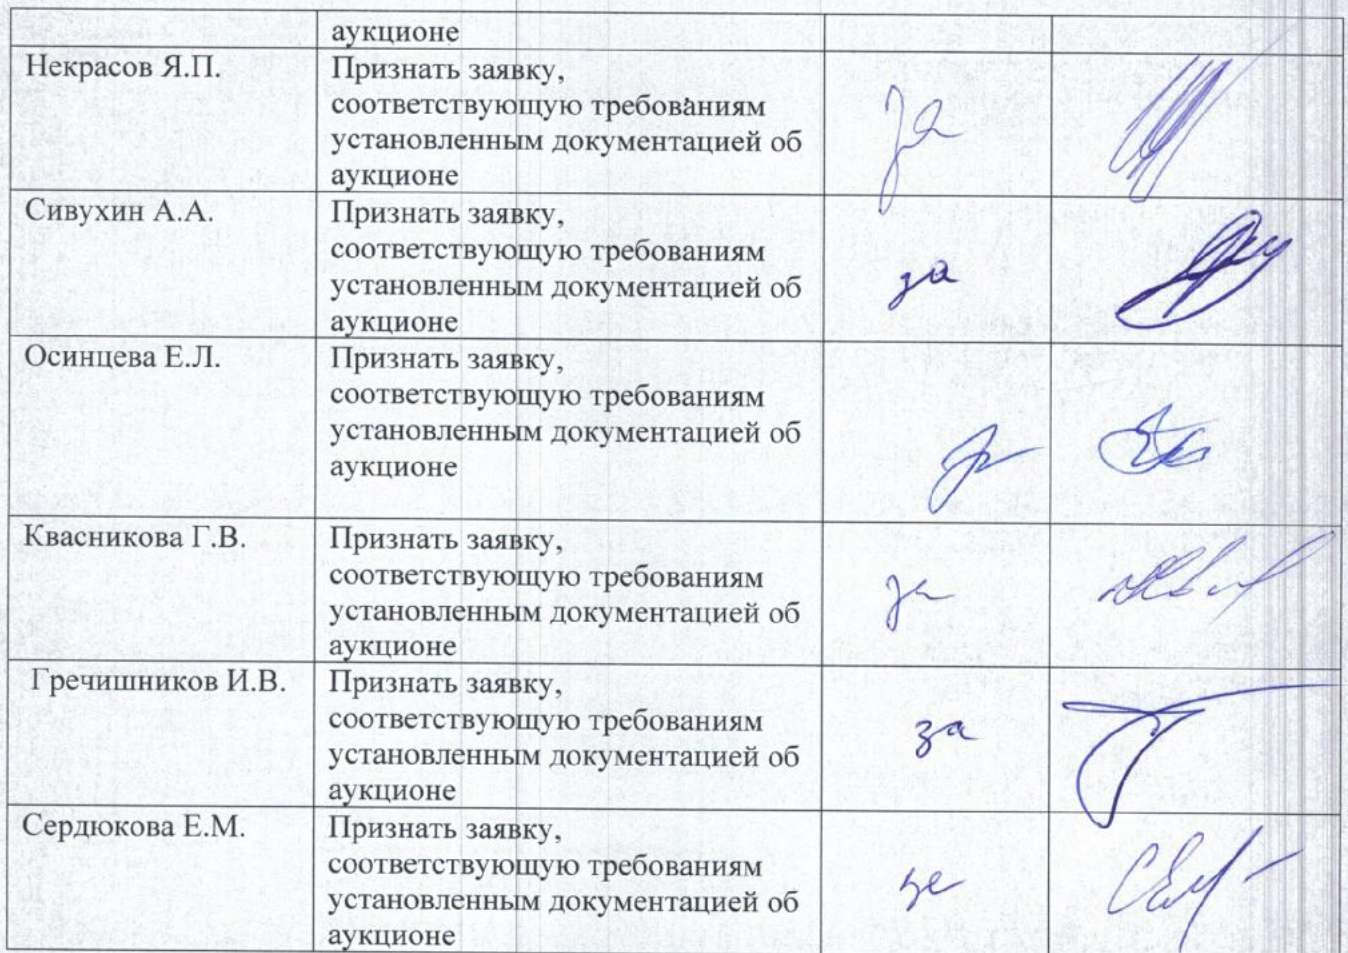 аукционе
Некрасов Я.П.
Признать заявку,
соответствующую требованиям
установленным документацией об
аукционе
за
Сивухин А.А.
Признать заявку,
соответствующую требованиям
установленным документацией об
аукционе
за
Осинцева Е.Л.
Признать заявку,
соответствующую требованиям
установленным документацией об
аукционе
за
Квасникова Г.В.
Признать заявку,
соответствующую требованиям
установленным документацией об
аукционе
за
Гречишников И.В.
Признать заявку,
соответствующую требованиям
установленным документацией об
аукционе
за
Сердюкова Е.М.
Признать заявку,
соответствующую требованиям
установленным документацией об
аукционе
за